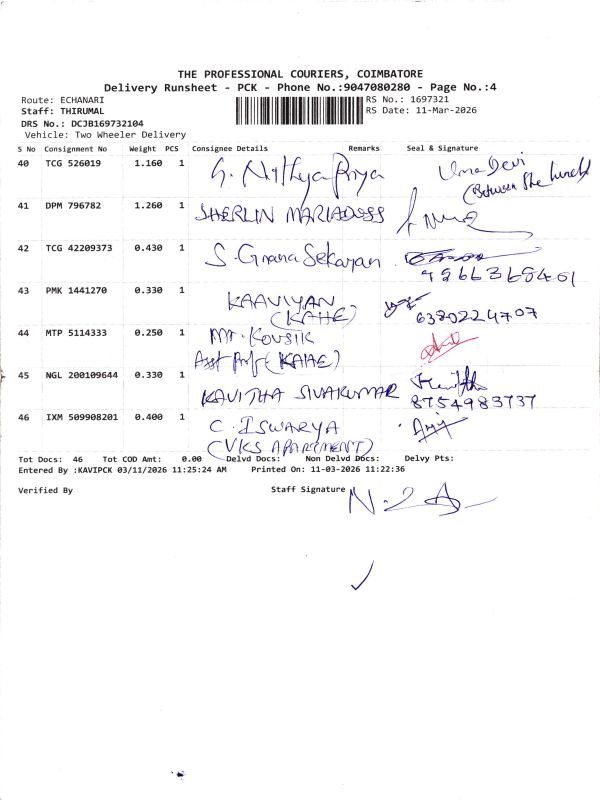 THE PROFESSIONAL COURIERS, COIMBATORE
Delivery Runsheet - PCK - Phone No.:9047080280 - Page No.:4
Route: ECHANARI
RS No.: 1697321
Staff: THIRUMAL
RS Date: 11-Mar-2026
DRS No.: DCJB169732104
Vehicle: Two Wheeler Delivery
S No Consignment No Weight PCS Consignee Details Remarks Seal & Signature
40 TCG 526019 1.160 1 S. Nithya Priya Uma Devi
(Between She
41 DPM 796782 1.260 1 SHERLIN MARIADOSS
42 TCG 42209373 0.430 1 S. Gnana Sekaran
43 PMK 1441270 0.330 1 KAAVIYAN
(KAHE) 6380224707
44 MTP 5114333 0.250 1 Mr. Kousik
Asst Prof (KAHE)
45 NGL 200109644 0.330 1 KAVITHA SIVAKUMAR
8754983737
46 IXM 509908201 0.400 1 C. ISWARYA
(VKS APARTMENT)
Tot Docs: 46 Tot COD Amt: 0.00 Delvd Docs: Non Delvd Docs: Delvy Pts:
Entered By :KAVIPCK 03/11/2026 11:25:24 AM Printed On: 11-03-2026 11:22:36
Verified By Staff Signature